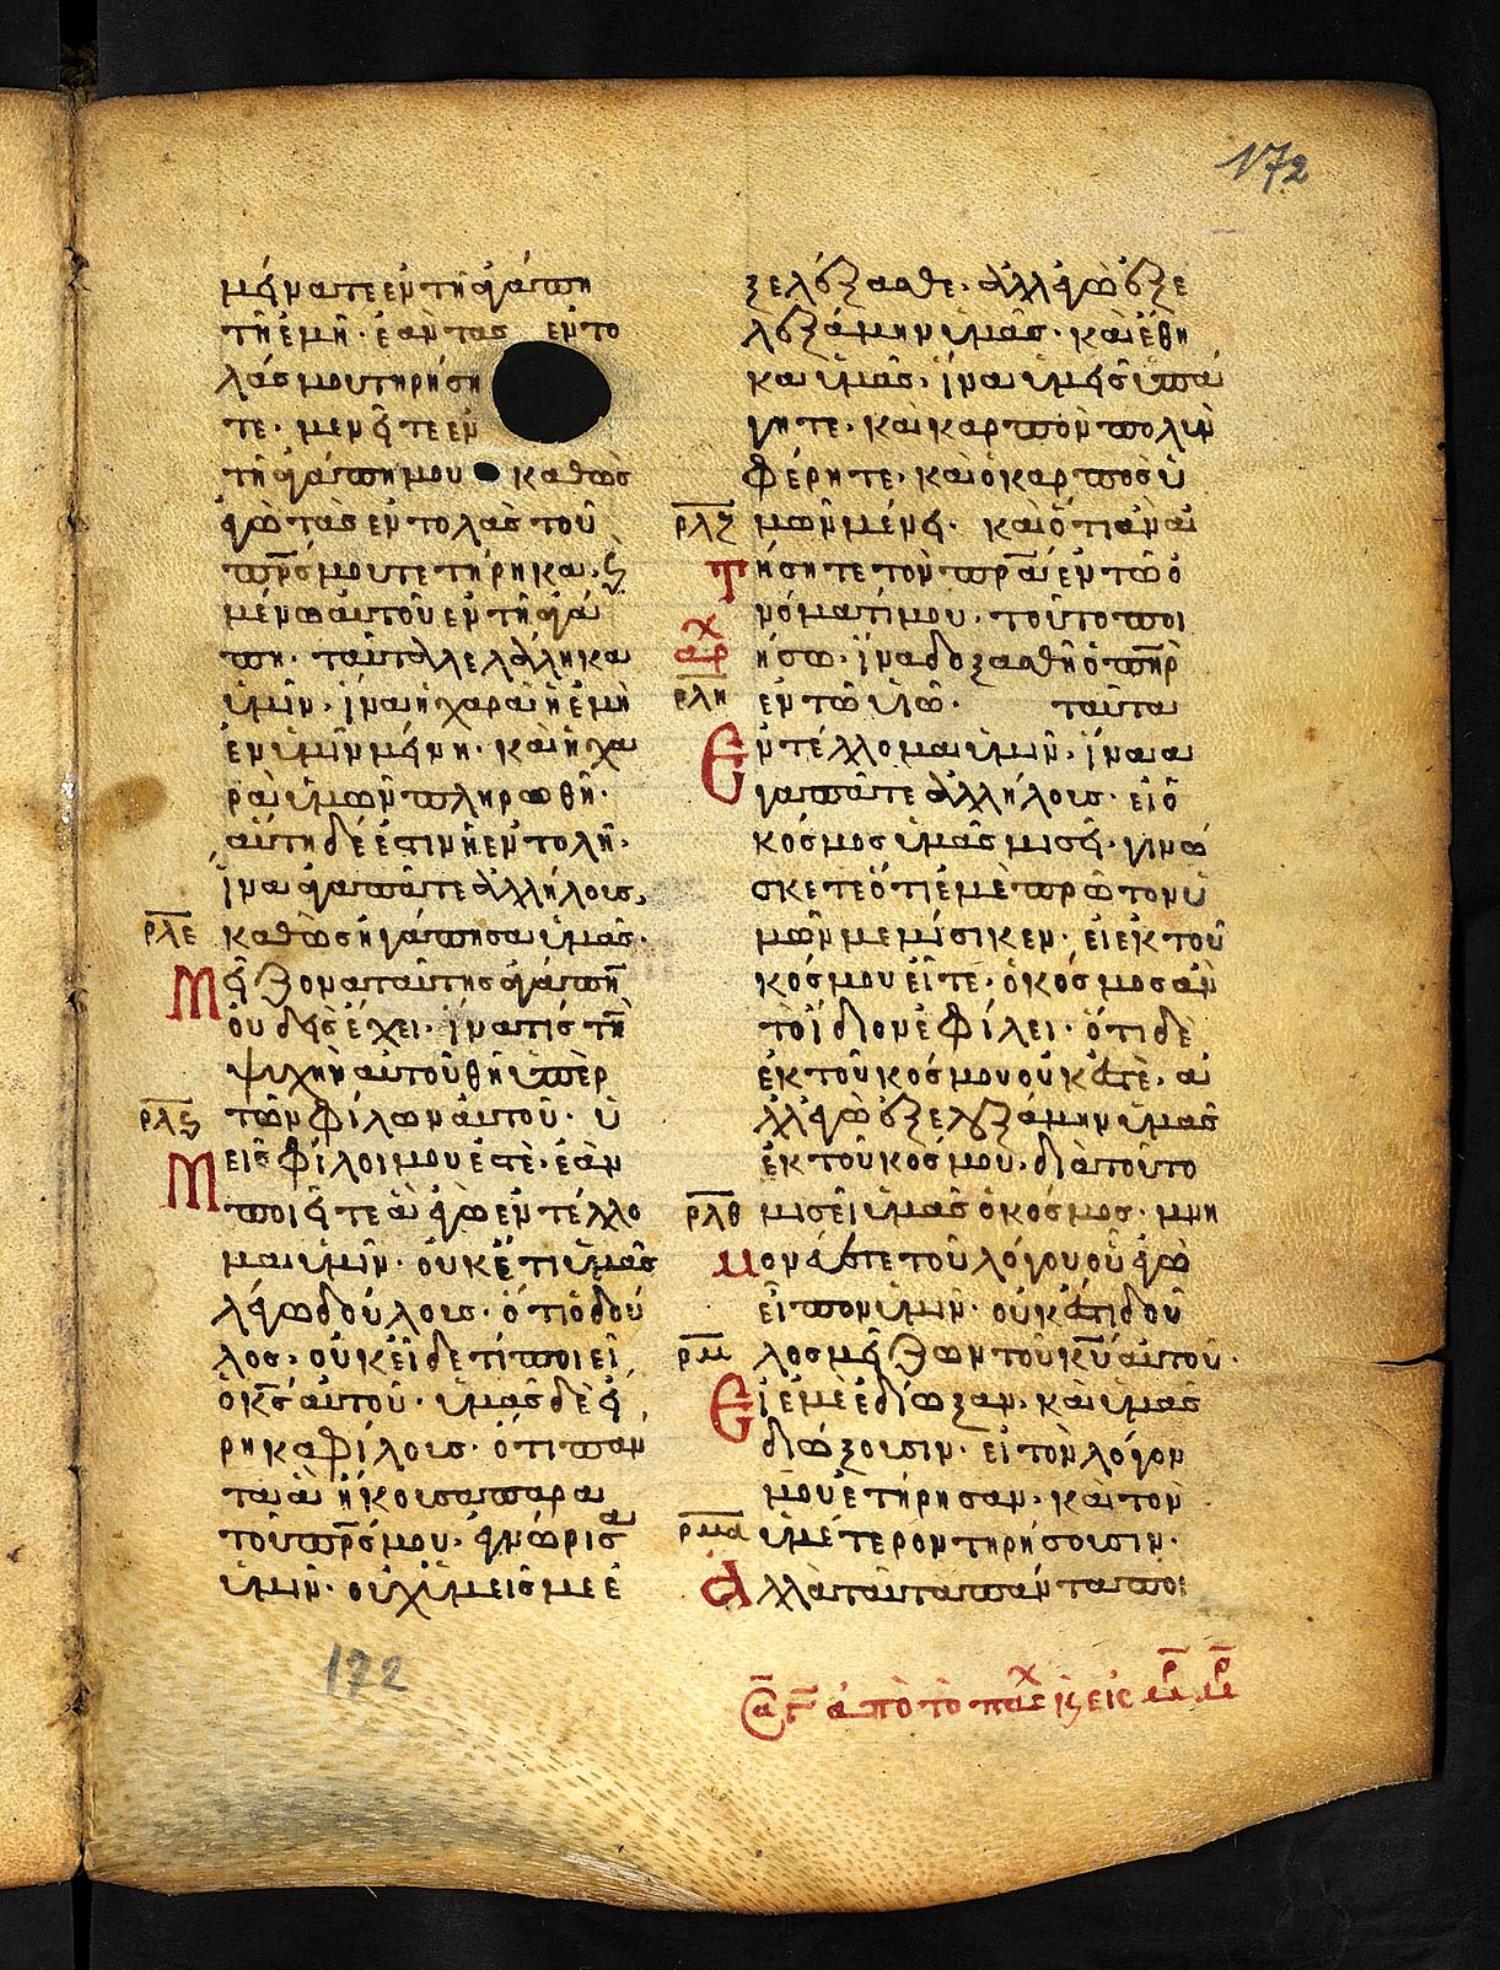 172
μείνατε ἐν τῆ ἀγάπη
τῆ ἐμῆ· ἐὰν τὰς ἐντο
λάς μου τηρήση
τε· μενεῖτε ἐν
τῆ ἀγάπη μου καθὼς
ἐγὼ τὰς ἐντολὰς τοῦ
πρ̅ς μου τετήρηκα· ϗ
μένω αὐτοῦ ἐν τῆ ἀγά
πη· ταῦτα λελάληκα
ὑμῖν· ἵνα ἡ χαρὰ ἡ ἐμὴ
ἐν ὑμῖν μείνη· καὶ ἡ χα
ρὰ ὑμῶν πληρωθῆ·
αὕτη δέ ἐστιν ἡ ἐντολή·
ἵνα ἀγαπᾶτε ἀλλήλους,
ρλε καθὼς ἠγάπησα ὑμᾶς·
Μείζονα ταύτης ἀγάπη̅
οὐδεὶς ἔχει· ἵνα τίς τὴ̅
ψυχὴν αὐτοῦ θῆ ὑπὲρ
ρλϛ τῶν φίλων αὐτοῦ· ὑ
Μεῖς φίλοι μου ἐστὲ· ἐὰν
ποιεῖτε ἃ ἐγὼ ἐντέλλο
μαι ὑμῖν· οὐκέτι ὑμᾶς
λέγω δούλους· ὅτι ὁ δοῦ
λος· οὐκ εἶδε τί ποιεῖ
ὁ κ̅ς αὐτοῦ· ὑμᾶς δὲ εἴ
ρηκα φίλους· ὅτι πάν
τα ἃ ἤκουσα παρα
τοῦ πρ̅ς μου· ἐγνώρισα
ὑμῖν· οὐχ ὑμεῖς με ἐ
ξελέξασθε· ἀλλ ἐγὼ ἐξε
λεξάμην ὑμᾶς· καὶ ἔθη
κα ὑμᾶς· ἵνα ὑμεῖς ὑπά
γητε· καὶ καρπὸν πολὺν
φέρητε· καὶ ὁ καρπὸς ὑ
ρλζ μῶν μένει· καὶ ὅτι ἂν αἰ
Τήσητε τὸν πρ̅α ἐν τῶ ὀ
νόματί μου· τοῦτο ποι
ήσω· ἵνα δοξασθῆ ὁ πη̅ρ
ρλη ἐν τῶ υἱῶ· ταῦτα
Ἐντέλλομαι ὑμῖν· ἵνα α
γαπᾶτε ἀλλήλους· εἰ ὁ
κόσμος ὑμᾶς μισεῖ· γινώ
σκετε ὅτι ἐμὲ πρῶτον ὑ
μῶν μεμίσικεν· εἰ ἐκ τοῦ
κόσμου εἶτε· ὁ κόσμος ἂν
τὸ ἴδιον ἐφίλει· ὅτι δὲ
ἐκ τοῦ κόσμου οὐκ ἐστὲ· α
λλ ἐγὼ ἐξελεξάμην ὑμᾶς
ἐκ τοῦ κόσμου· διὰ τοῦτο
ρλθ μισεῖ ὑμᾶς ὁ κόσμος· μνη
μονεύετε τοῦ λόγου οὗ ἐγὼ
εἶπον ὑμῖν· οὐκ ἔστι δοῦ
ρμ λος μείζων τοῦ κ̅υ αὐτοῦ·
Εἰ ἐμὲ ἐδίωξαν· καὶ ὑμᾶς
διώξουσιν· εἰ τὸν λόγον
μου ἐτήρησαν· καὶ τὸν
ρμα ὑμέτερον τηρήσουσιν·
Ἀλλὰ ταῦτα πάντα ποι
172